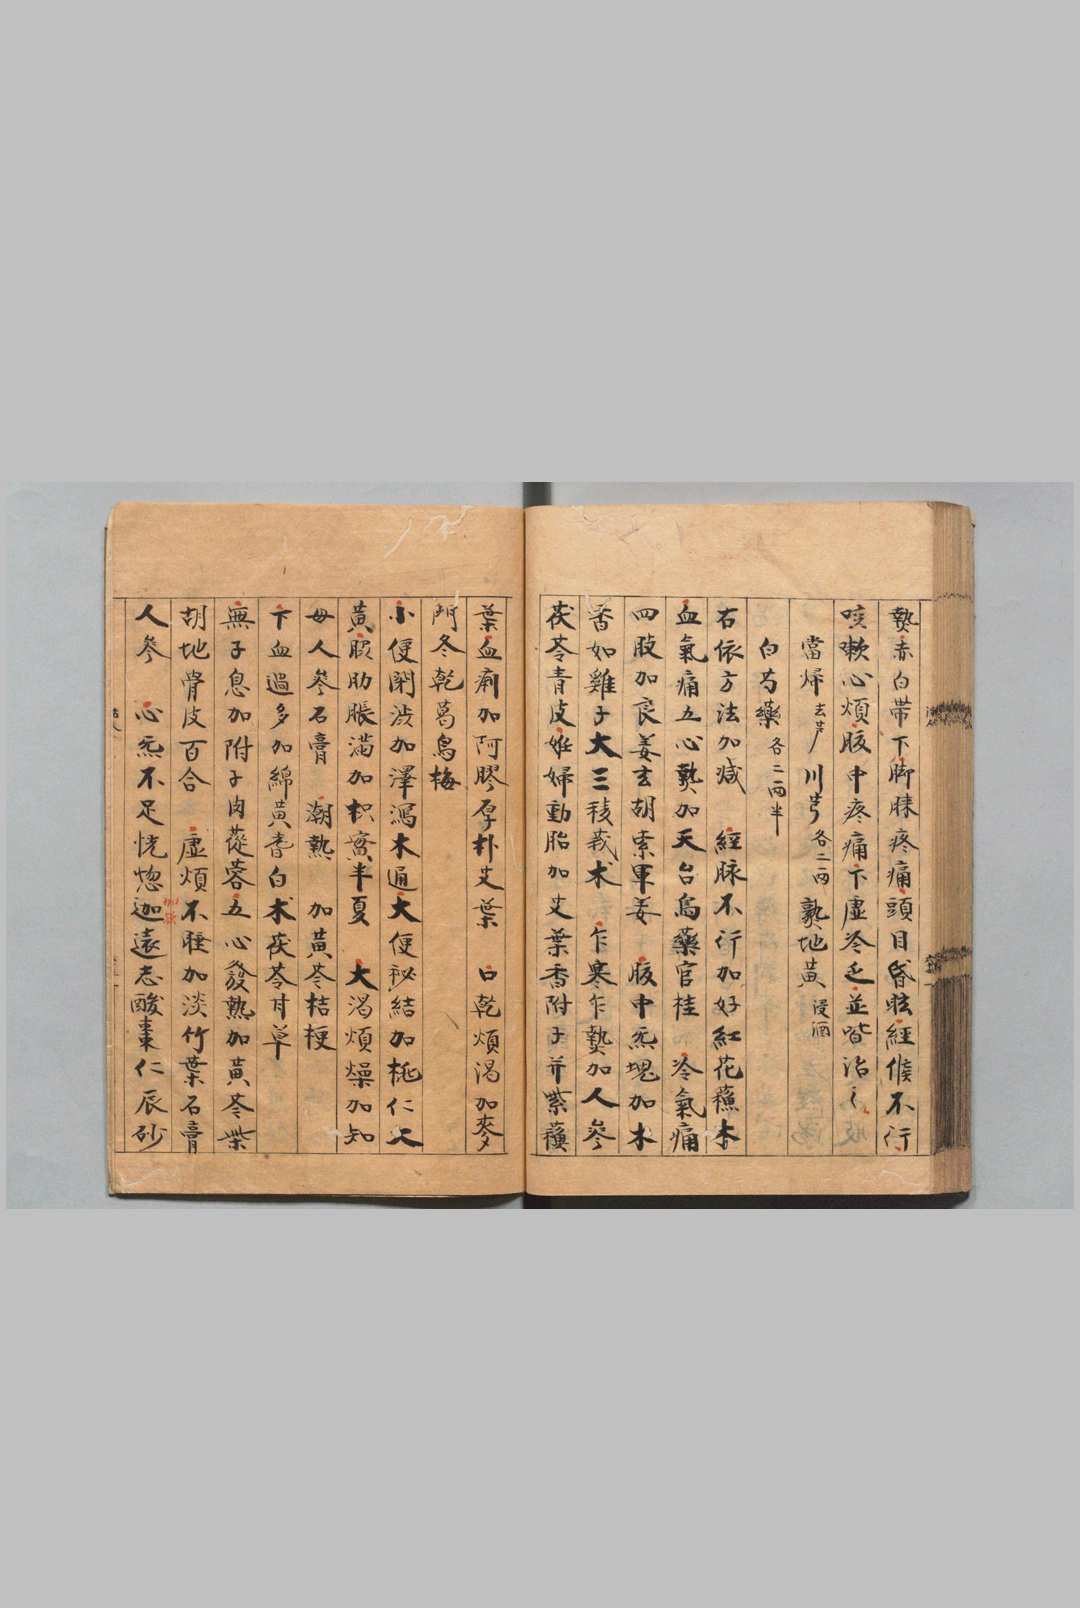 熱赤白帶下脚膝疼痛頭目昏眩經候不行
咳嗽心煩腹中疼痛下虛冷乏並皆治之
當㱕去芦川芎各二两熟地黃浸酒
白芍藥各二两半
右依方法加减 經脉不行加好紅花蘓木
血氣痛五心熱加天台烏藥官桂 冷氣痛
四肢加良姜玄胡索軍姜 腹中炁塊加木
香如雞子大三稜莪术 乍寒乍熱加人參
茯苓青皮妊婦動胎加艾葉香附子并紫蘓
葉血痢加阿膠厚朴艾葉 口乾煩渴加麥
門冬乾葛烏梅
小便閉渋加澤瀉木通大便秘結加桃仁大
黃腹肋脹滿加枳實半夏 大渴煩燥加知
母人參石膏 潮熱 加黃芩桔梗
下血過多加綿黃耆白术茯苓甘草
無子息加附子肉蓯蓉五心發熱加黃芩柴
胡地骨皮百合 虛煩不睡加淡竹葉石膏
人參 心炁不足恍惚加遠志酸棗仁辰砂